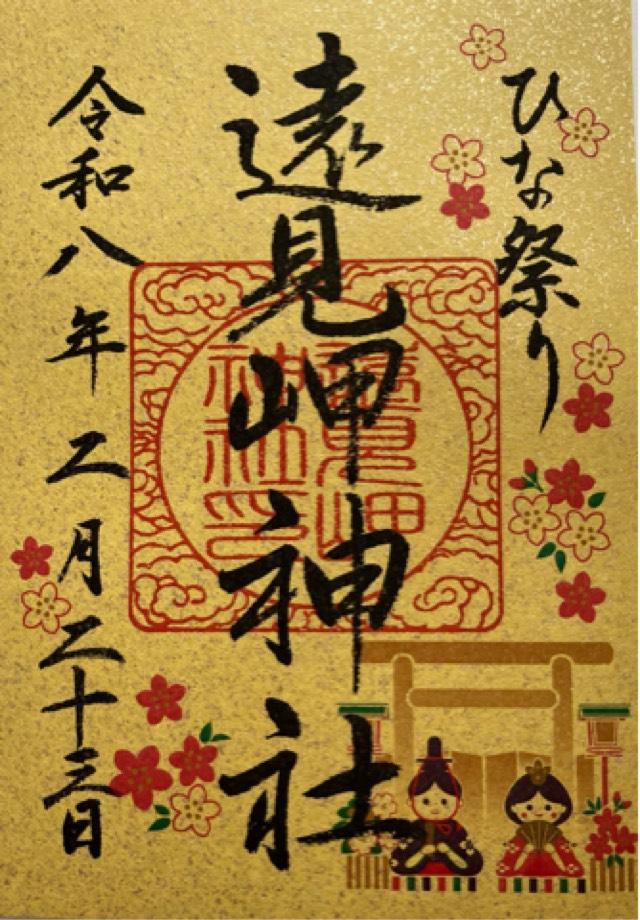 ひな祭り
遠見岬神社
遠見岬
神社印
令和八年二月二十三日